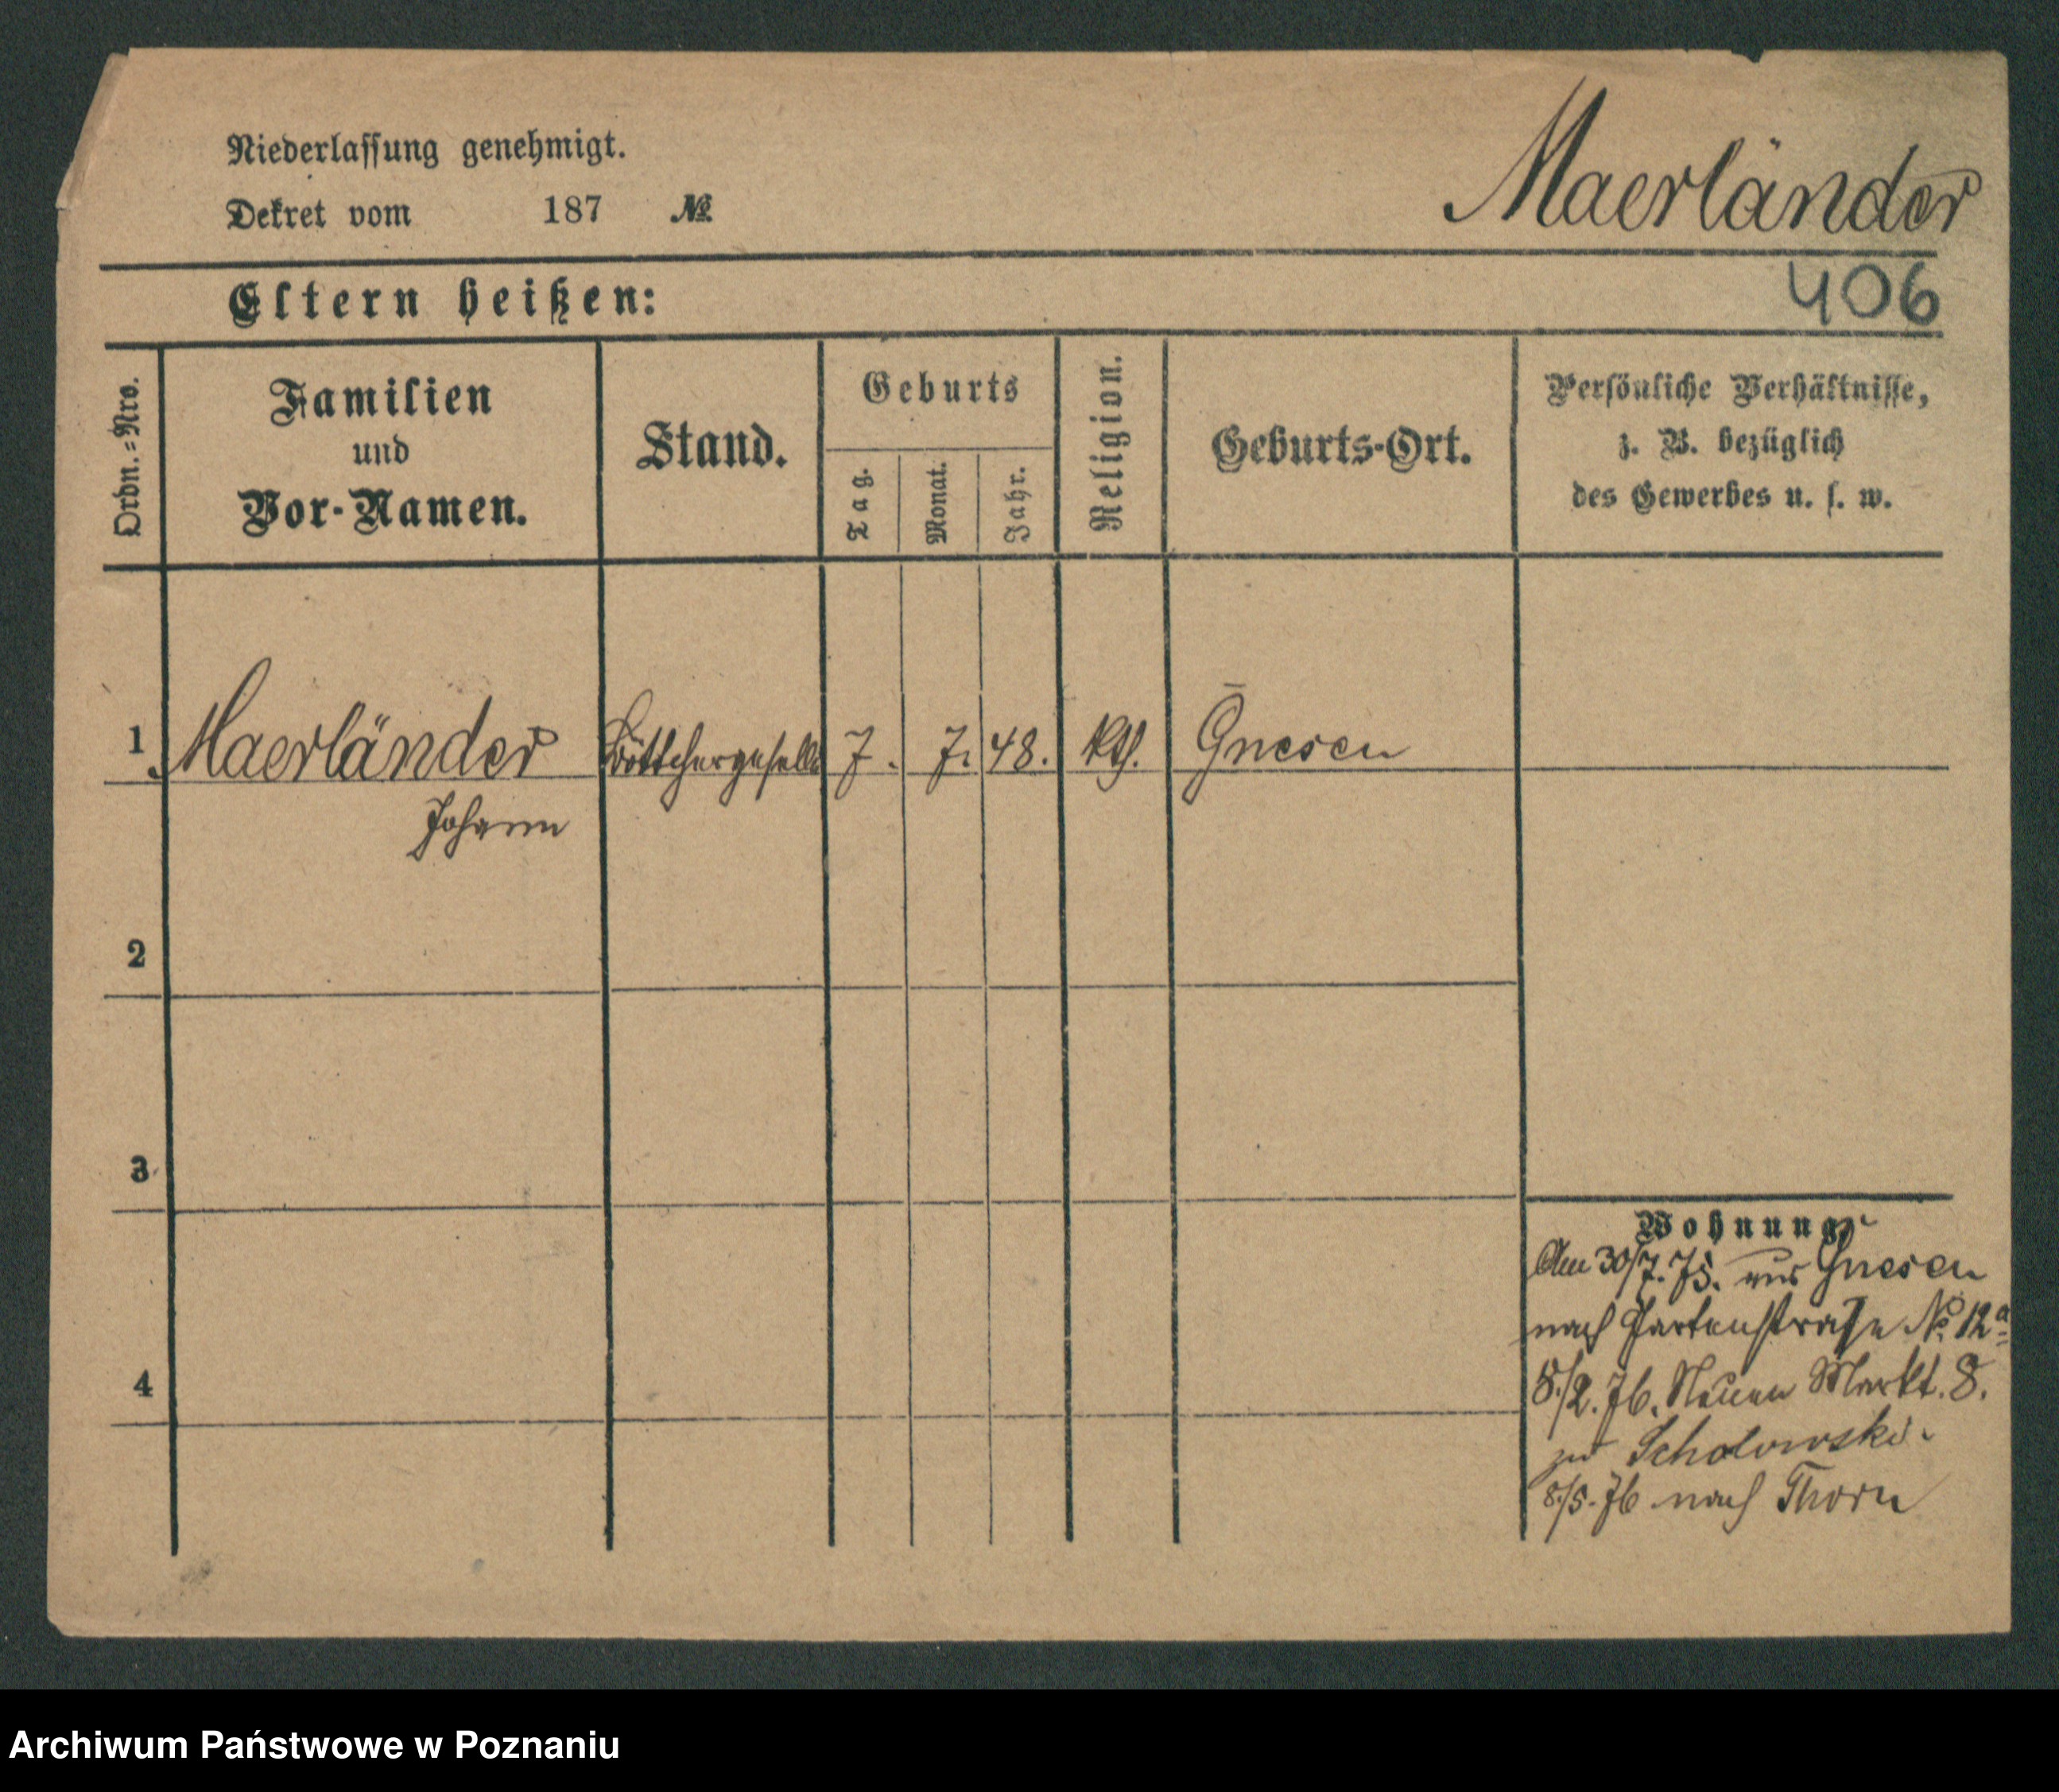 Niederlassung genehmigt.
Dekret vom 187 №
Maerländer
406
Eltern heißen:
Ordn.=Nro.
Familien
und
Vor-Namen.
Stand.
Geburts
Tag.
Monat.
Jahr.
Religion.
Geburts-Ort.
Persönliche Verhältnisse,
z. B. bezüglich
des Gewerbes u. s. w.
1 Maerländer Böttchergeselle 7. 7. 48. kth. Gnesen
Johann
2
3
4
Wohnung
Am 30/7. 75. aus Gnesen
nach Gartenstraße No. 12a
8./2. 76. Neuen Markt. 8.
zu
8/5. 76 nach Thorn
Archiwum Państwowe w Poznaniu